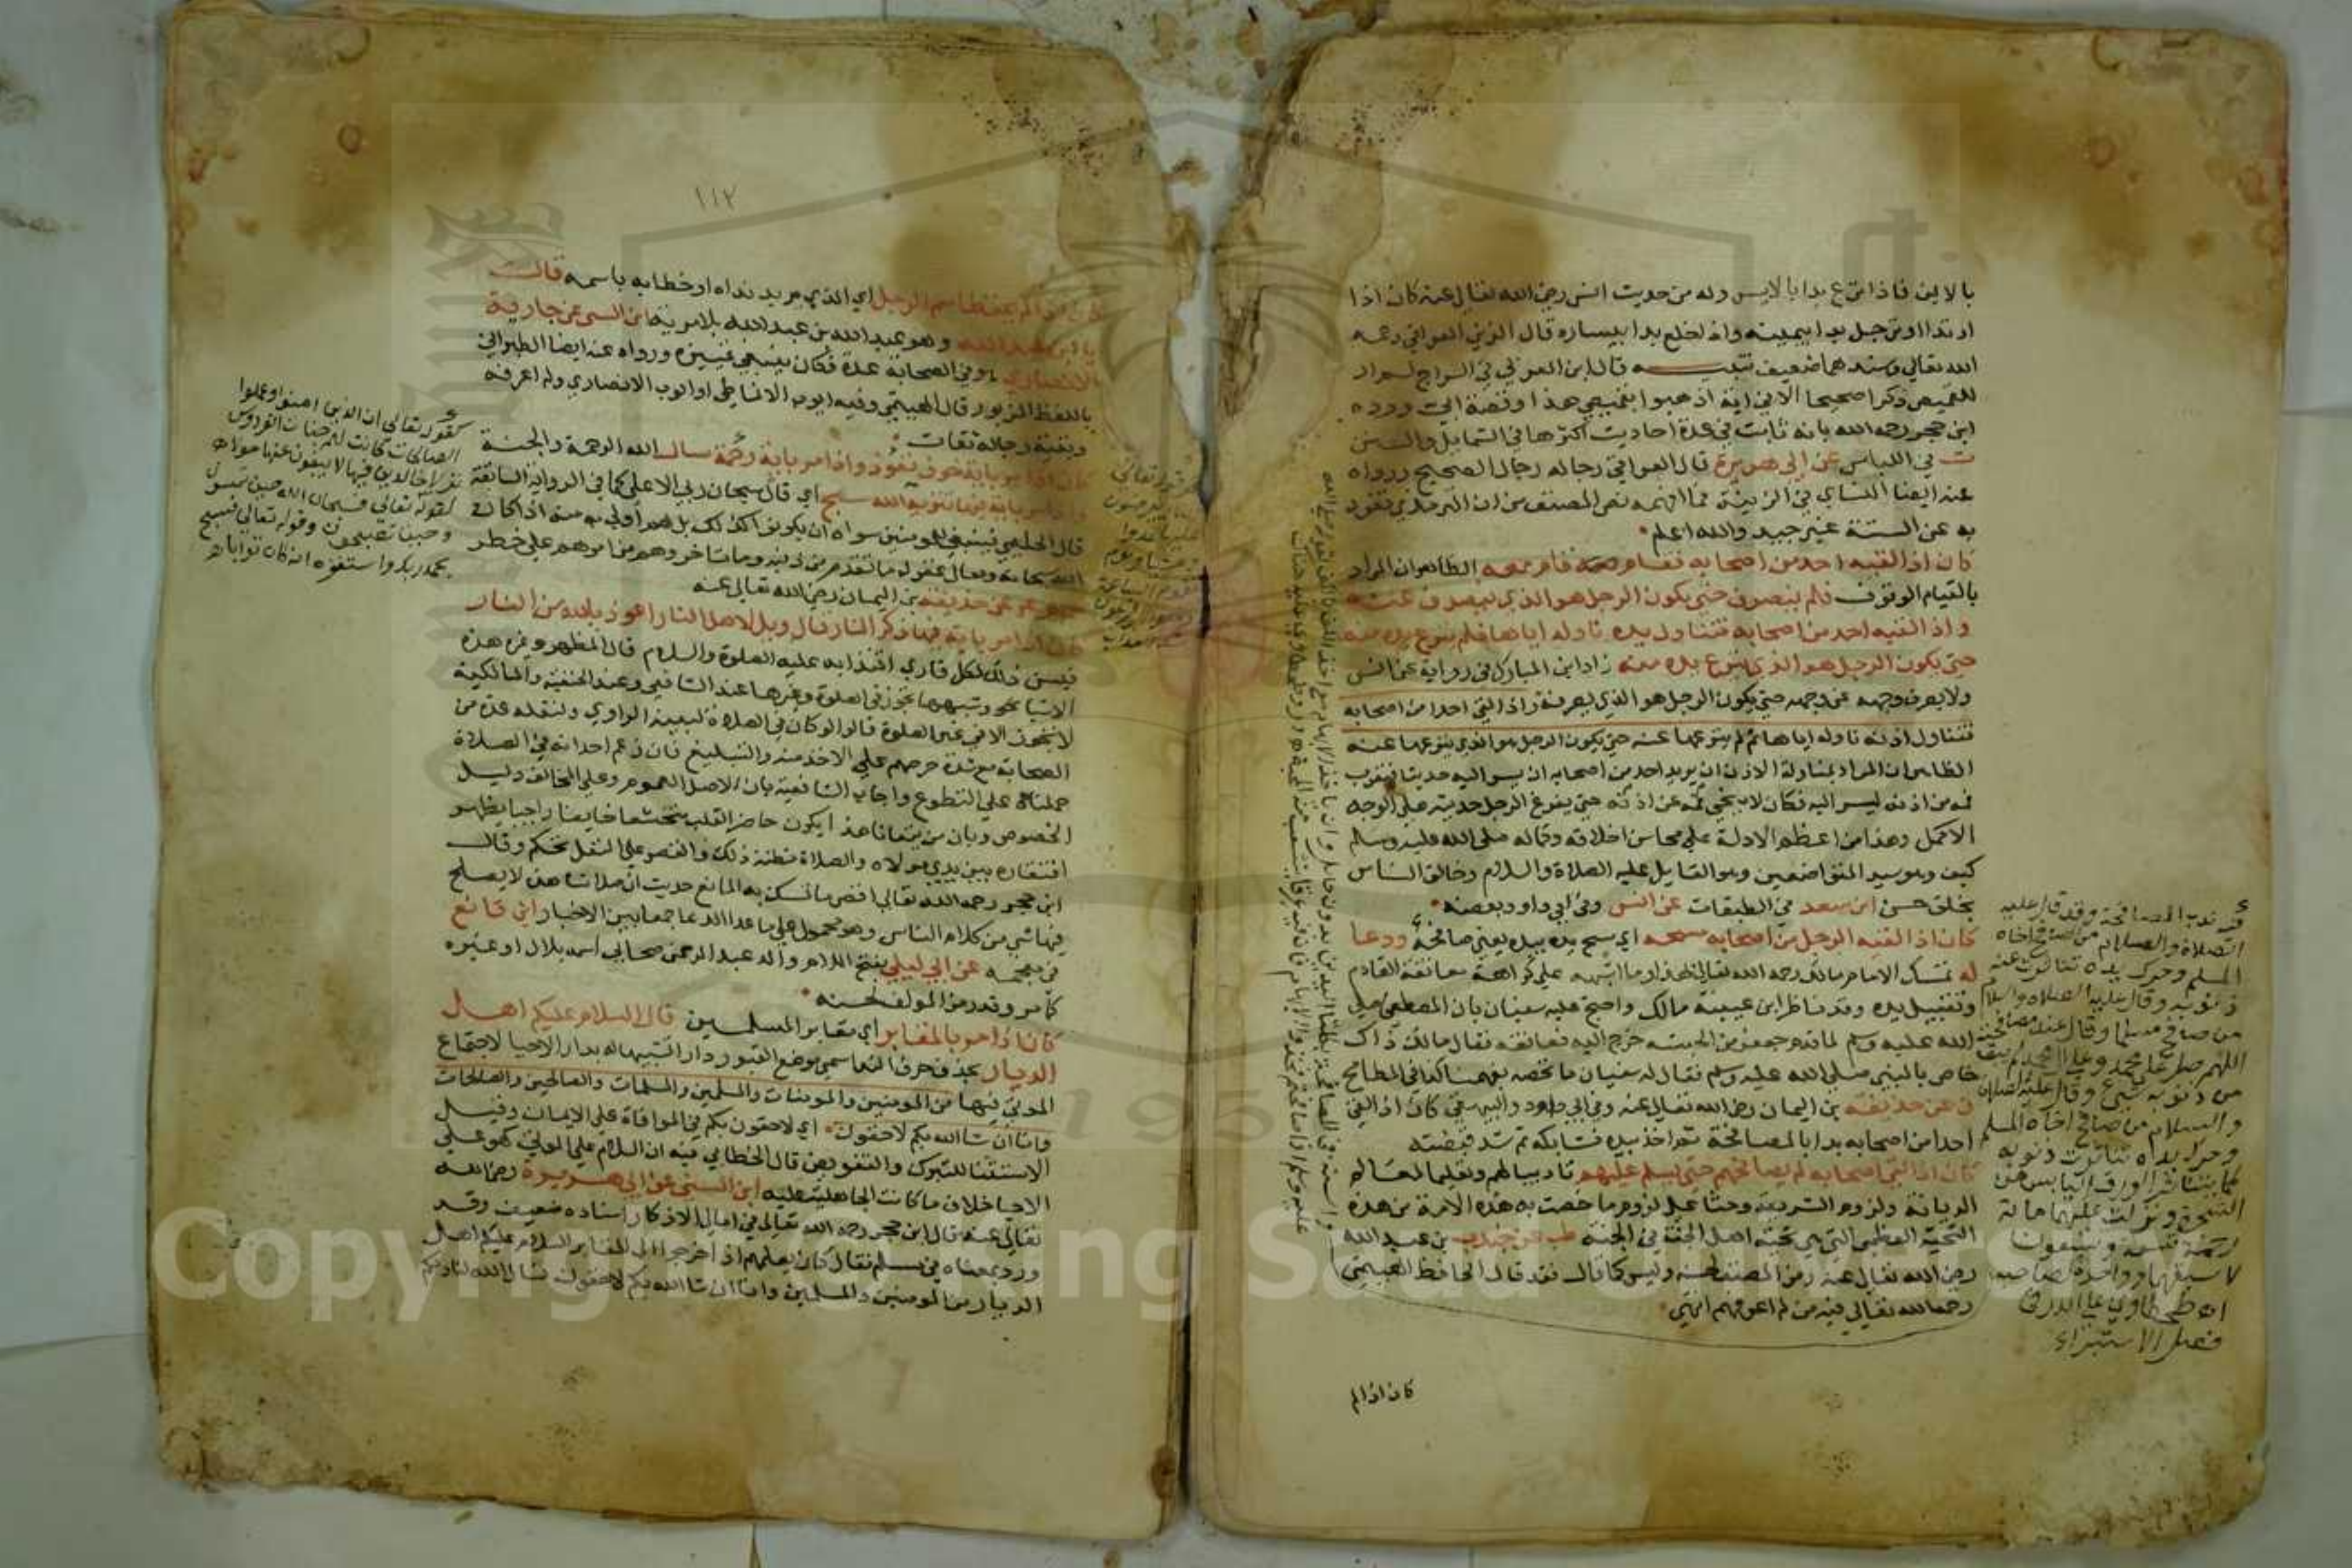 بالايمن فاذا نزع بدا بالايسر وله من حديث انس رضي الله تعالى عنه كان اذا
ارتدا او ترجل بدا بيمينه واذا خلع بدا بيساره قال الزين العراقي رحمه
الله تعالى وسندهما ضعيف تنبيه قال ابن العربي في السراج لم ار
للقميص ذكرا صحيحا الا في اية اذهبوا بقميصي هذا وقصة ابي ورده
ابن حجر رحمه الله بانه ثابت في عدة احاديث اكثرها في الشمايل والسنن
ت في اللباس عن ابي هريرة قال العراقي رجاله رجال الصحيح ورواه
عنه ايضا النساي في الزينة فما افهمه نص المصنف من ان الترمذي تفرد
به عن الستة غير جيد والله اعلم
كان اذا لقيه احد من اصحابه فقام معه قام معه الظاهر ان المراد
بالقيام الوقوف فلم ينصرف حتى يكون الرجل هو الذي ينصرف عنه
واذا لقيه احد من اصحابه فتناول يده ناوله اياها فلم ينزع يده منه
حتى يكون الرجل هو الذي ينزع يده منه زاد ابن المبارك في رواية عن انس
ولا يصرف وجهه عن وجهه حتى يكون الرجل هو الذي يصرفه واذا لقي احدا من اصحابه
فتناول اذنه ناوله اياها ثم لم ينزعها عنه حتى يكون الرجل هو الذي ينزعها عنه
الظاهر ان المراد بمناولة الاذن ان يريد احد من اصحابه ان يسر اليه حديثا فيقرب
فمه من اذنه ليسر اليه فكان لا ينحي فمه عن اذنه حتى يفرغ الرجل حديثه على الوجه
الاكمل وهذا من اعظم الادلة على محاسن اخلاقه وكماله صلى الله عليه وسلم
كيف وهو سيد المتواضعين وهو القايل عليه الصلاة والسلام وخالق الناس
بخلق حسن ابن سعد في الطبقات عن انس وفي ابي داود بعضه
كان اذا لقيه الرجل من اصحابه مسحه اي مسح يده بيده يعني صافحه ودعا
له تمسك الامام مالك رحمه الله تعالى بهذا وما اشبهه على كراهة معانقة القادم
وتقبيل يده وقد ناظر ابن عيينة مالك واحتج عليه سفيان بان المصطفى صلى
الله عليه وسلم لما قدم جعفر من الحبشة خرج اليه فعانقه فقال مالك ذاك
خاص بالنبي صلى الله عليه وسلم فقال له سفيان ما نخصه بفهمنا كذا في المطامح
ن عن حذيفة بن اليمان رضي الله تعالى عنه وفي ابي داود والبيهقي كان اذا لقي
احدا من اصحابه بدا بالمصافحة ثم اخذ بيده فشابكه ثم شد قبضته
كان اذا لقي اصحابه لم يصافحهم حتى يسلم عليهم تاديبا لهم وتعليما لمعالم
الديانة ولزوم الشريعة وحثا على لزوم ما خصت به هذه الامة من هذه
التحية العظمى التي هي تحية اهل الجنة في الجنة طب عن جندب بن عبد الله
رضي الله تعالى عنه رمز المصنف لحسنه وليس كما قال فقد قال الحافظ الهيتمي
رحمه الله تعالى فيه من لم اعرفهم انتهى
كان اذا لم
فيه ندب المصافحة وقد قال عليه
الصلاة والسلام من صافح اخاه
المسلم وحرك يده تناثرت عنه
ذنوبه وقال عليه الصلاة والسلام
من صافح مسلما وقال عند مصافحته
اللهم صل على محمد وعلى آل محمد لم يبق
من ذنوبه شيئ وقال عليه الصلاة
والسلام من صافح اخاه المسلم
وحرك يداه تناثرت ذنوبه
كما يتناثر الورق اليابس من
الشجرة ونزلت عليهما مائة
رحمة تسعة وتسعون
لاسبقهما وواحدة لصاحبه
اه طحطاوي على الدر في
فصل الاستبراء
١١٢
كان اذا لم يحفظ اسم الرجل اي الذي يريد نداه او خطابه باسمه قال
يا ابن عبد الله وهو عبد الله بن عبد الله بلا مرية ابن السني عن جارية
الانصاري وفي الصحابة عدة فكان ينبغي تمييزه ورواه عنه ايضا الطبراني
باللفظ المزبور قال الهيتمي وفيه ايوب الانماطي او ايوب الانصاري ولم اعرفه
وبقية رجاله ثقات
كان اذا مر باية خوف تعوذ واذا مر باية رحمة سال الله الرحمة والجنة
واذا مر باية فيها تنزيه الله سبح اي قال سبحان ربي الاعلى كما في الرواية السابقة
قال الحليمي فينبغي للمومنين سواه ان يكونوا كذلك بل هم اولى به منه اذا كان
الله سبحانه وتعالى غفر له ما تقدم من ذنبه وما تاخر وهم من امرهم على خطر
عن حذيفة بن اليمان رضي الله تعالى عنه
كان اذا مر باية فيها ذكر النار قال ويل لاهل النار اعوذ بالله من النار
فيسن ذلك لكل قاري اقتدا به عليه الصلوة والسلام قال المظهر وغيره هذه
الاشيا نحو وشبهها تجوز في الصلوة وغيرها عند الشافعي وعند الحنفية والمالكية
لا تجوز الا في غير الصلوة قالوا لو كان في الصلاة لبينه الراوي ولنقله عدة من
الصحابة مع شدة حرصهم على الاخذ منه والتبليغ فان زعم احد انه في الصلاة
حملناه على التطوع واجاب الشافعية بان الاصل العموم وعلى المخالف دليل
الخصوص وبان من يتعانا هذا يكون حاضر القلب متخشعا خايفا راجيا يظهر
افتقاره بين يدي مولاه والصلاة مظنة ذلك والقصر على النفل تحكم وقال
ابن حجر رحمه الله تعالى اقصى ما تمسك به المانع حديث ان صلاتنا هذه لا يصلح
فيها شي من كلام الناس وهو محمول على ما عدا الدعا جمعا بين الاخبار ابن قانع
في معجمه عن ابي ليلى بفتح اللام والد عبد الرحمن صحابي اسمه بلال او غيره
كما مر وقد رمز المولف لحسنه
كان اذا مر بالمقابر اي مقابر المسلمين قال السلام عليكم اهل
الديار بحذف حرف الندا سمي موضع القبور دار اتشبيها له بدار الاحيا لاجتماع
الموتى فيها من المومنين والمومنات والمسلمين والمسلمات والصالحين والصالحات
وانا ان شا الله بكم لاحقون اي لاحقون بكم في الموافاة على الايمان وقيل
الاستثنا للتبرك والتفويض قال الخطابي فيه ان السلام على الموتى كهو على
الاحيا خلاف ما كانت الجاهلية عليه ابن السني عن ابي هريرة رضي الله
تعالى عنه قال ابن حجر رحمه الله تعالى في امالي الاذكار اسناده ضعيف وقد
ورد بمعناه في مسلم فقال كان يعلمهم اذا خرجوا الى المقابر السلام عليكم اهل
الديار من المومنين والمسلمين وانا ان شا الله بكم لاحقون نسال الله لنا ولكم
كقوله تعالى ان الذين امنوا وعملوا
الصالحات كانت لهم جنات الفردوس
نزلا خالدين فيها لا يبغون عنها حولا
كقوله تعالى فسبحان الله حين تمسون
وحين تصبحون وقوله تعالى فسبح
بحمد ربك واستغفره انه كان توابا
Copyright © King Saud University